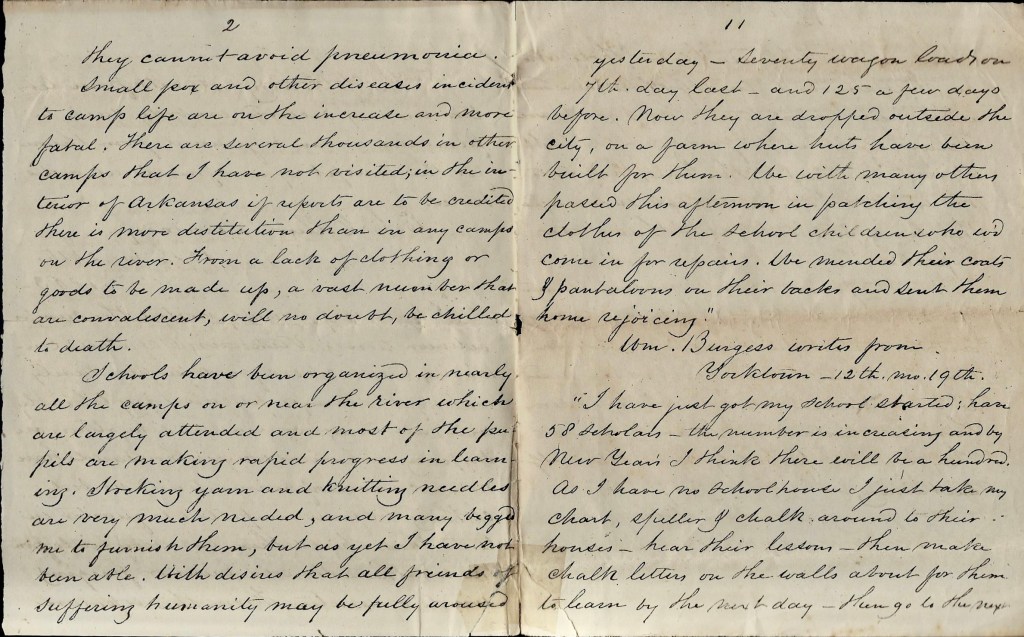 2
they cannot avoid pneumonia.
Small pox and other diseases incident
to camp life are on the increase and more
fatal. There are several thousands in other
camps that I have not visited; in the in-
terior of Arkansas if reports are to be credited
there is more destitution than in any camps
on the river. From a lack of clothing or
goods to be made up, a vast number that
are convalescent, will no doubt, be chilled
to death.
Schools have been organized in nearly
all the camps on or near the river which
are largely attended and most of the pu-
pils are making rapid progress in learn-
ing. Stocking yarn and knitting needles
are very much needed, and many begged
me to furnish them, but as yet I have not
been able. With desires that all friends of
suffering humanity may be fully aroused
11
yesterday – Seventy wagon loads on
7th. day last – and 125 a few days
before. Now they are dropped outside the
city, on a farm where huts have been
built for them. We with many others
passed this afternoon in patching the
clothes of the school children who wd
come in for repairs. We mended their coats
& pantaloons on their backs and sent them
home rejoicing"
Wm. Burgess writes from
Yorktown – 12th. mo. 19th.
"I have just got my school started; have
58 scholars – the number is increasing and by
New Years I think there will be a hundred.
As I have no schoolhouse I just take my
chart, speller & chalk around to their
houses – hear their lessons – then make
chalk letters on the walls about for them
to learn by the next day – then go to the next